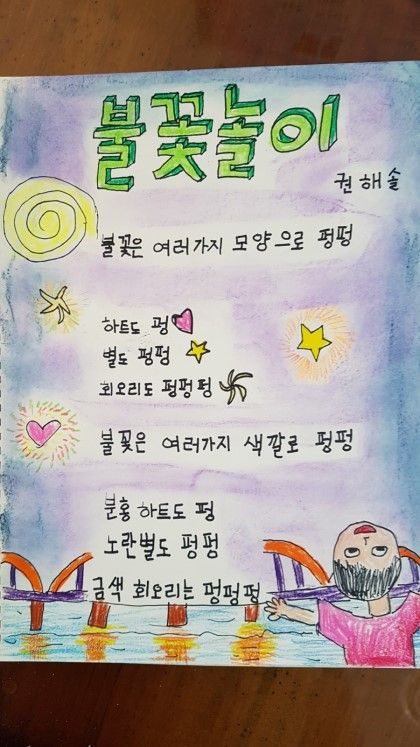 불꽃놀이
권해솔
불꽃은 여러가지 모양으로 펑펑
하트도 펑
별도 펑펑
회오리도 펑펑펑
불꽃은 여러가지 색깔로 펑펑
분홍 하트도 펑
노란별도 펑펑
금색 회오리는 펑펑펑